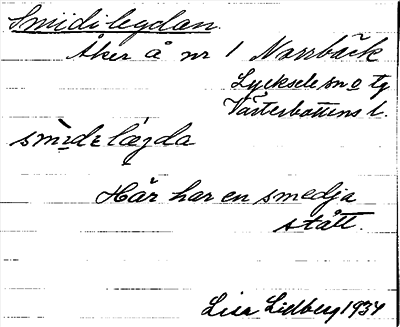 Smidilegdan.
Åker å nr 1 Norrbäck
Lycksele sn o tg
Västerbottens l.
smìdelæ̀gda
Här har en smedja
stått.
Lisa Lidberg 1934